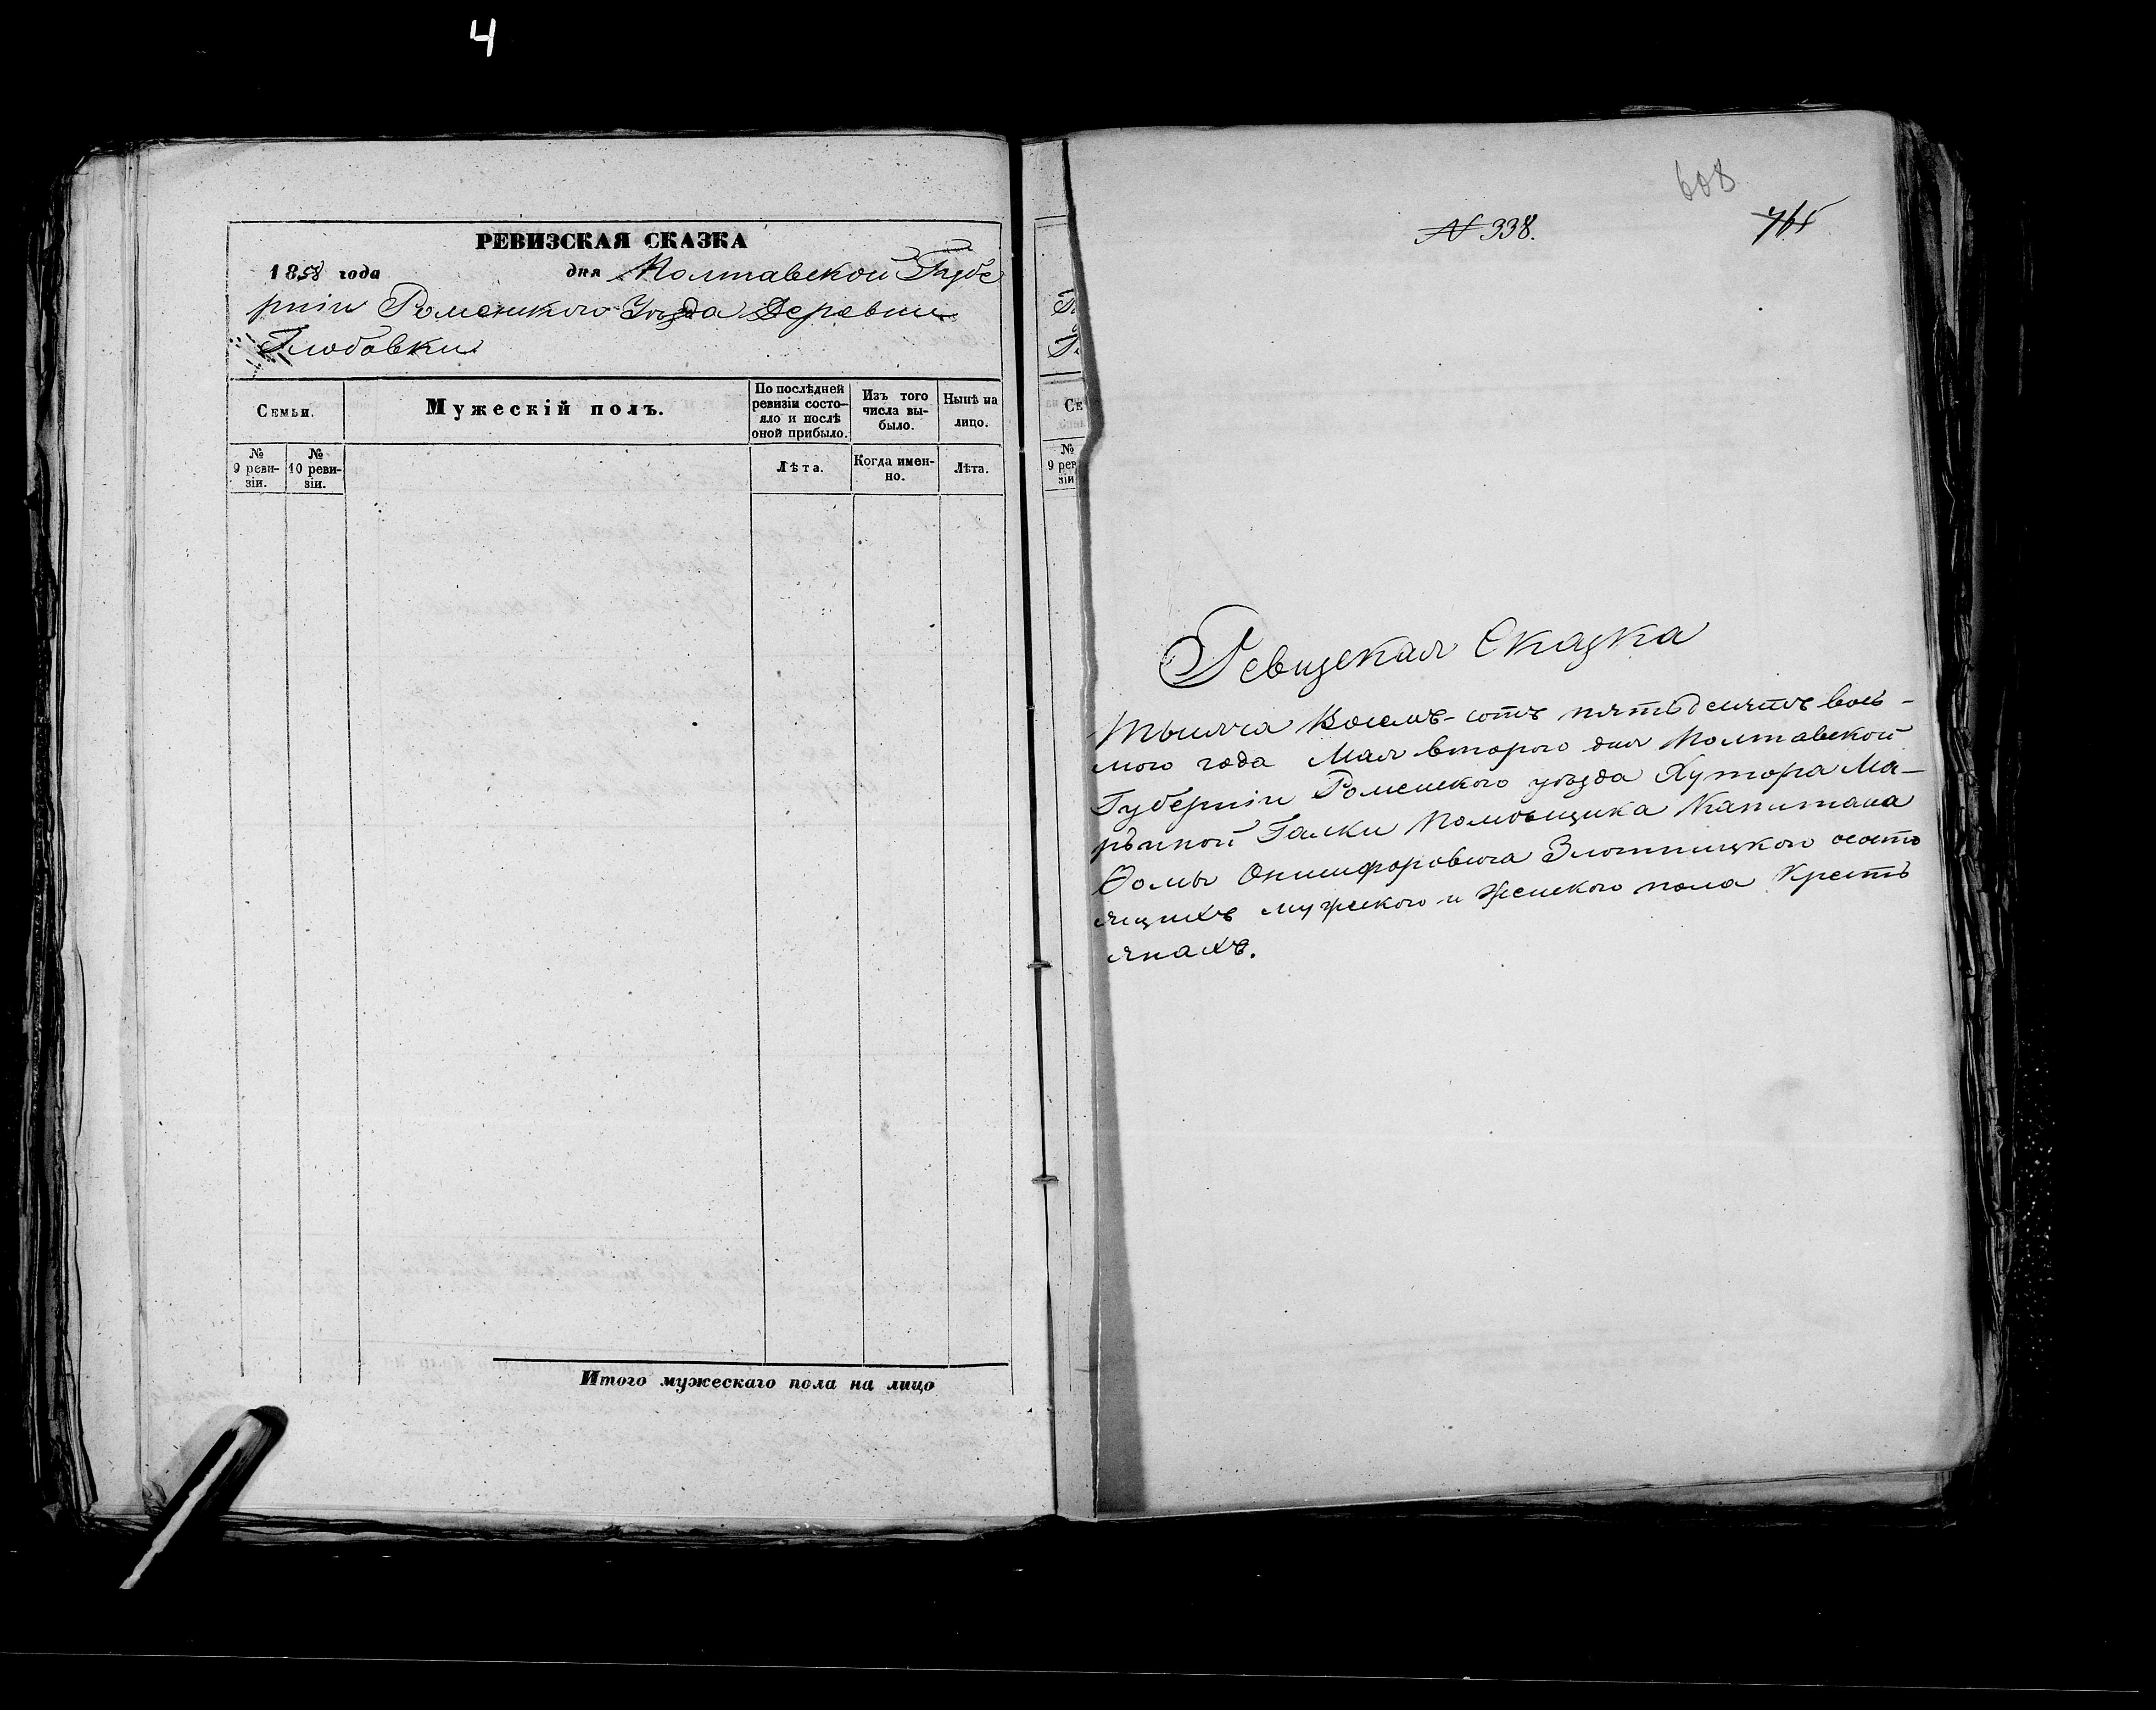 4
РЕВИЗСКАЯ СКАЗКА
1858 года дня Полтавской Губе
рніи Роменского Уѣзда Деревни
Глюбовки
Семьи.
Мужескій полъ.
По послѣдней
ревизіи состо-
яло и послѣ
оной прибыло.
Изъ того
числа вы-
было.
Нынѣ на
лицо.
№
9 реви-
зіи.
№
10 реви-
зіи.
Лѣта.
Когда имен-
но.
Лѣта.
Итого мужескаго пола на лицо
Се
№
9 рев
зіи
608
№ 338.
Ревизская Сказка
Тысяча Восемь-сотъ пятьдесятъ вось-
мого года Мая второго дня Полтавской
Губерніи Роменского уѣзда Хутора Ма-
Галки Помѣщика Капитана
Ѳомы Онисифоровича Злотницкого состо
ящихъ мужского и Женского пола Кресть
янахъ.